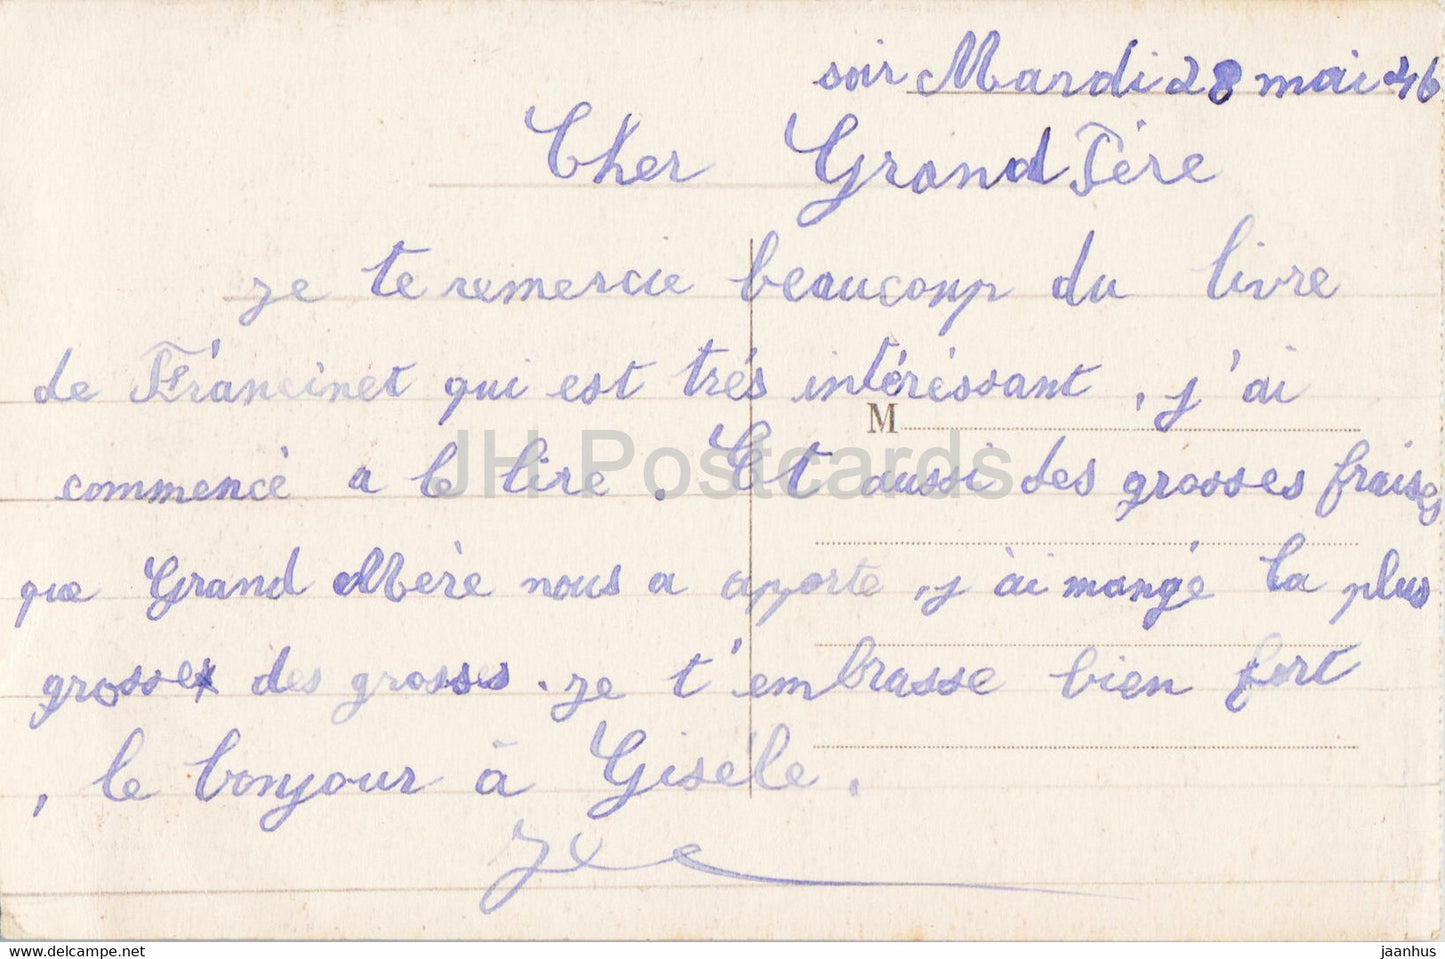 soir Mardi 28 mai 46
Cher Grand Père
je te remercie beaucoup du livre
de Francinet qui est trés intéréssant, j'ai
commencé a le lire. Et aussi des grosses fraises
que Grand Mère nous a apporte, j'ai mangé la plus
grosse des grosses. je t'embrasse bien fort
, le bonjour à Giséle.
M
JH Postcards
hipstamp.com
jaanhus